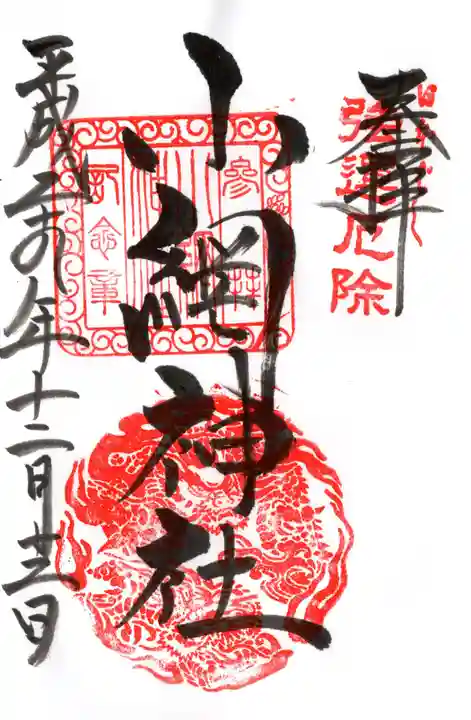 奉拝
強運厄除
小網神社
參拝
記念章
平成二十九年十二月十三日